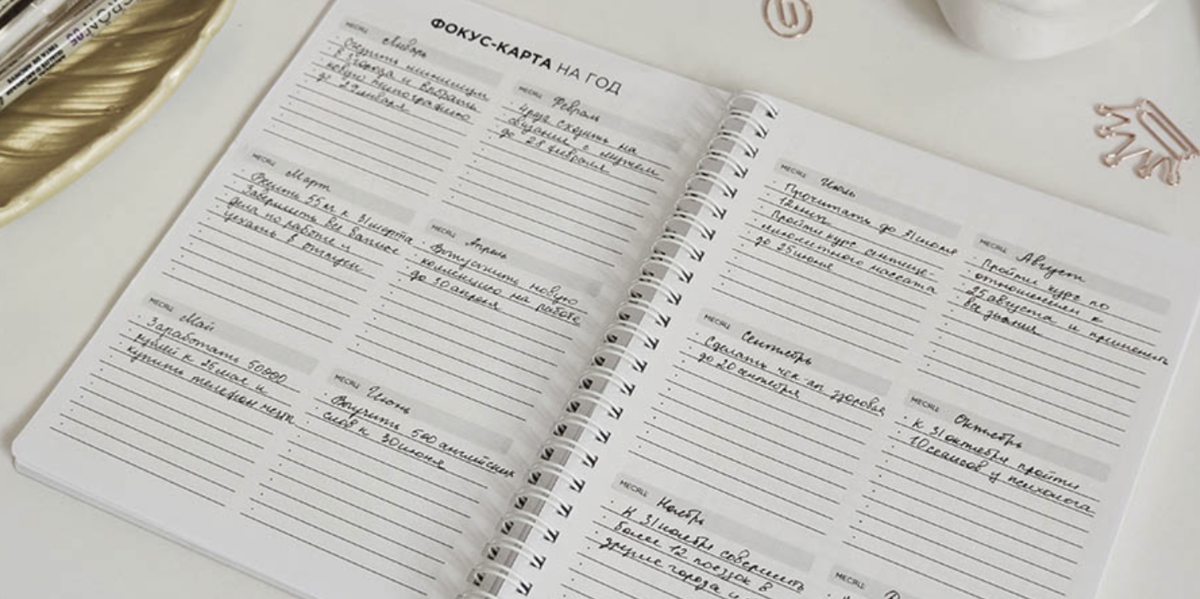 ФОКУС-КАРТА НА ГОД
МЕСЯЦ Январь
в 3 города и выбрать
новую типографию
до 29 января
МЕСЯЦ Февраль
сходить на
свидания с мужем
до 28 февраля
МЕСЯЦ Март
55 кг к 31 марта
Завершить все важные
дела по работе и
уехать в отпуск
МЕСЯЦ Апрель
Запустить новую
коллекцию на работе
до 30 апреля
МЕСЯЦ Май
Заработать 50000
рублей к 25 мая и
купить телефон мечты
МЕСЯЦ Июнь
Выучить 500 английских
слов к 30 июня
МЕСЯЦ Июль
Прочитать до 31 июля
12 книг
Пройти курс
массажа
до 25 июля
МЕСЯЦ Август
Пройти курс по
отношениям к
25 августа и применить
все знания
МЕСЯЦ Сентябрь
Сделать чек-ап здоровья
до 20 сентября
МЕСЯЦ Октябрь
К 31 октября пройти
10 сеансов у психолога
МЕСЯЦ Ноябрь
К 31 ноября совершить
более 12 поездок в
другие города и
МЕСЯЦ